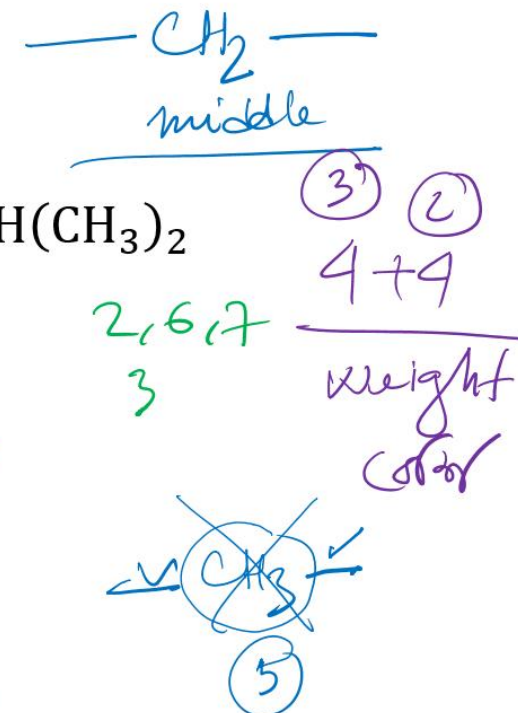 — CH₂ —
middle
H(CH₃)₂
3 2
4+4
2,6,7
3
weight
color
CH₃
5